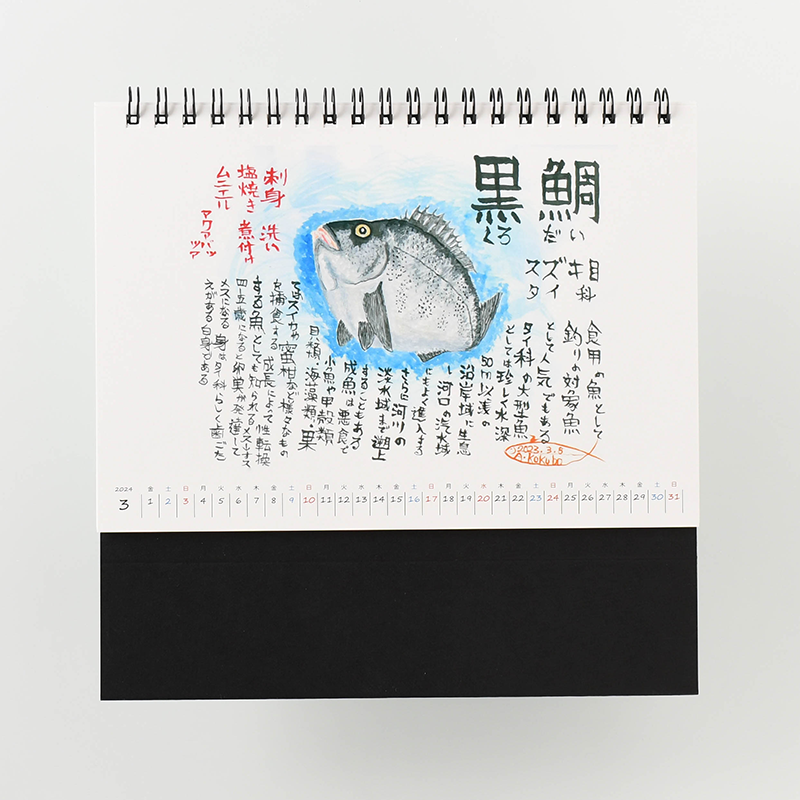 黒鯛
くろだい
スズキ目
タイ科
食用の魚として
釣りの対象魚
として人気でもある
タイ科の大型魚
としては珍しく水深
50m以浅の
沿岸域に生息
し河口の汽水域
にもよく進入する
さらに河川の
淡水域まで遡上
することもある
成魚は悪食で
小魚や甲殻類
貝類・海藻類・果
てはスイカや蜜柑など様々なもの
を捕食する 成長によって性転換
する魚としても知られる
四-五歳になると卵巣が発達して
メスになる 身はタイ科らしく歯ごた
えがある白身である
刺身 洗い
塩焼き 煮付け
ムニエル
アクアパッツァ
2023.3.5
A.Kokubo
2024
3
金 土 日 月 火 水 木 金 土 日 月 火 水 木 金 土 日 月 火 水 木 金 土 日 月 火 水 木 金 土 日
1 2 3 4 5 6 7 8 9 10 11 12 13 14 15 16 17 18 19 20 21 22 23 24 25 26 27 28 29 30 31